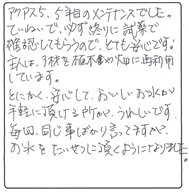 アクアス5、5年目のメンテナンスでした。
ていねいで、必ず終りに試薬で
確認してもらうので、とても安心です!
主人は、3枚を植木番や畑に再利用
しています。
とにかく、安心して、おいしいおつ
手軽に頂ける所が、うれしいです。
毎回、同じ事ばかり言ってますが、
お水をたいせつに頂くようになりました。